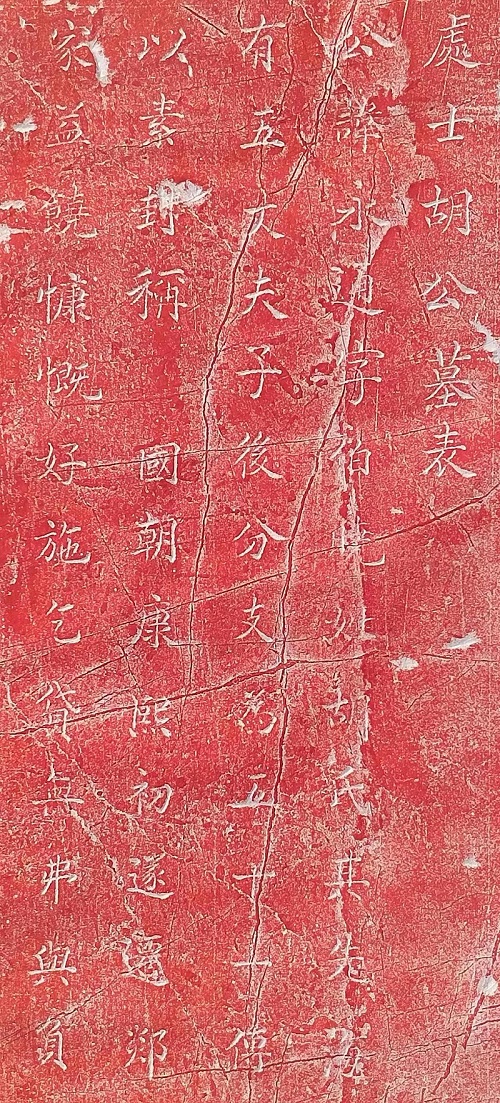 處士胡公墓表
公諱永字柏姓胡氏其先
有五大夫子後分支為五十一傳
以素封稱 國朝康熙初遂遷
家益饒慷慨好施乞貸無弗與負